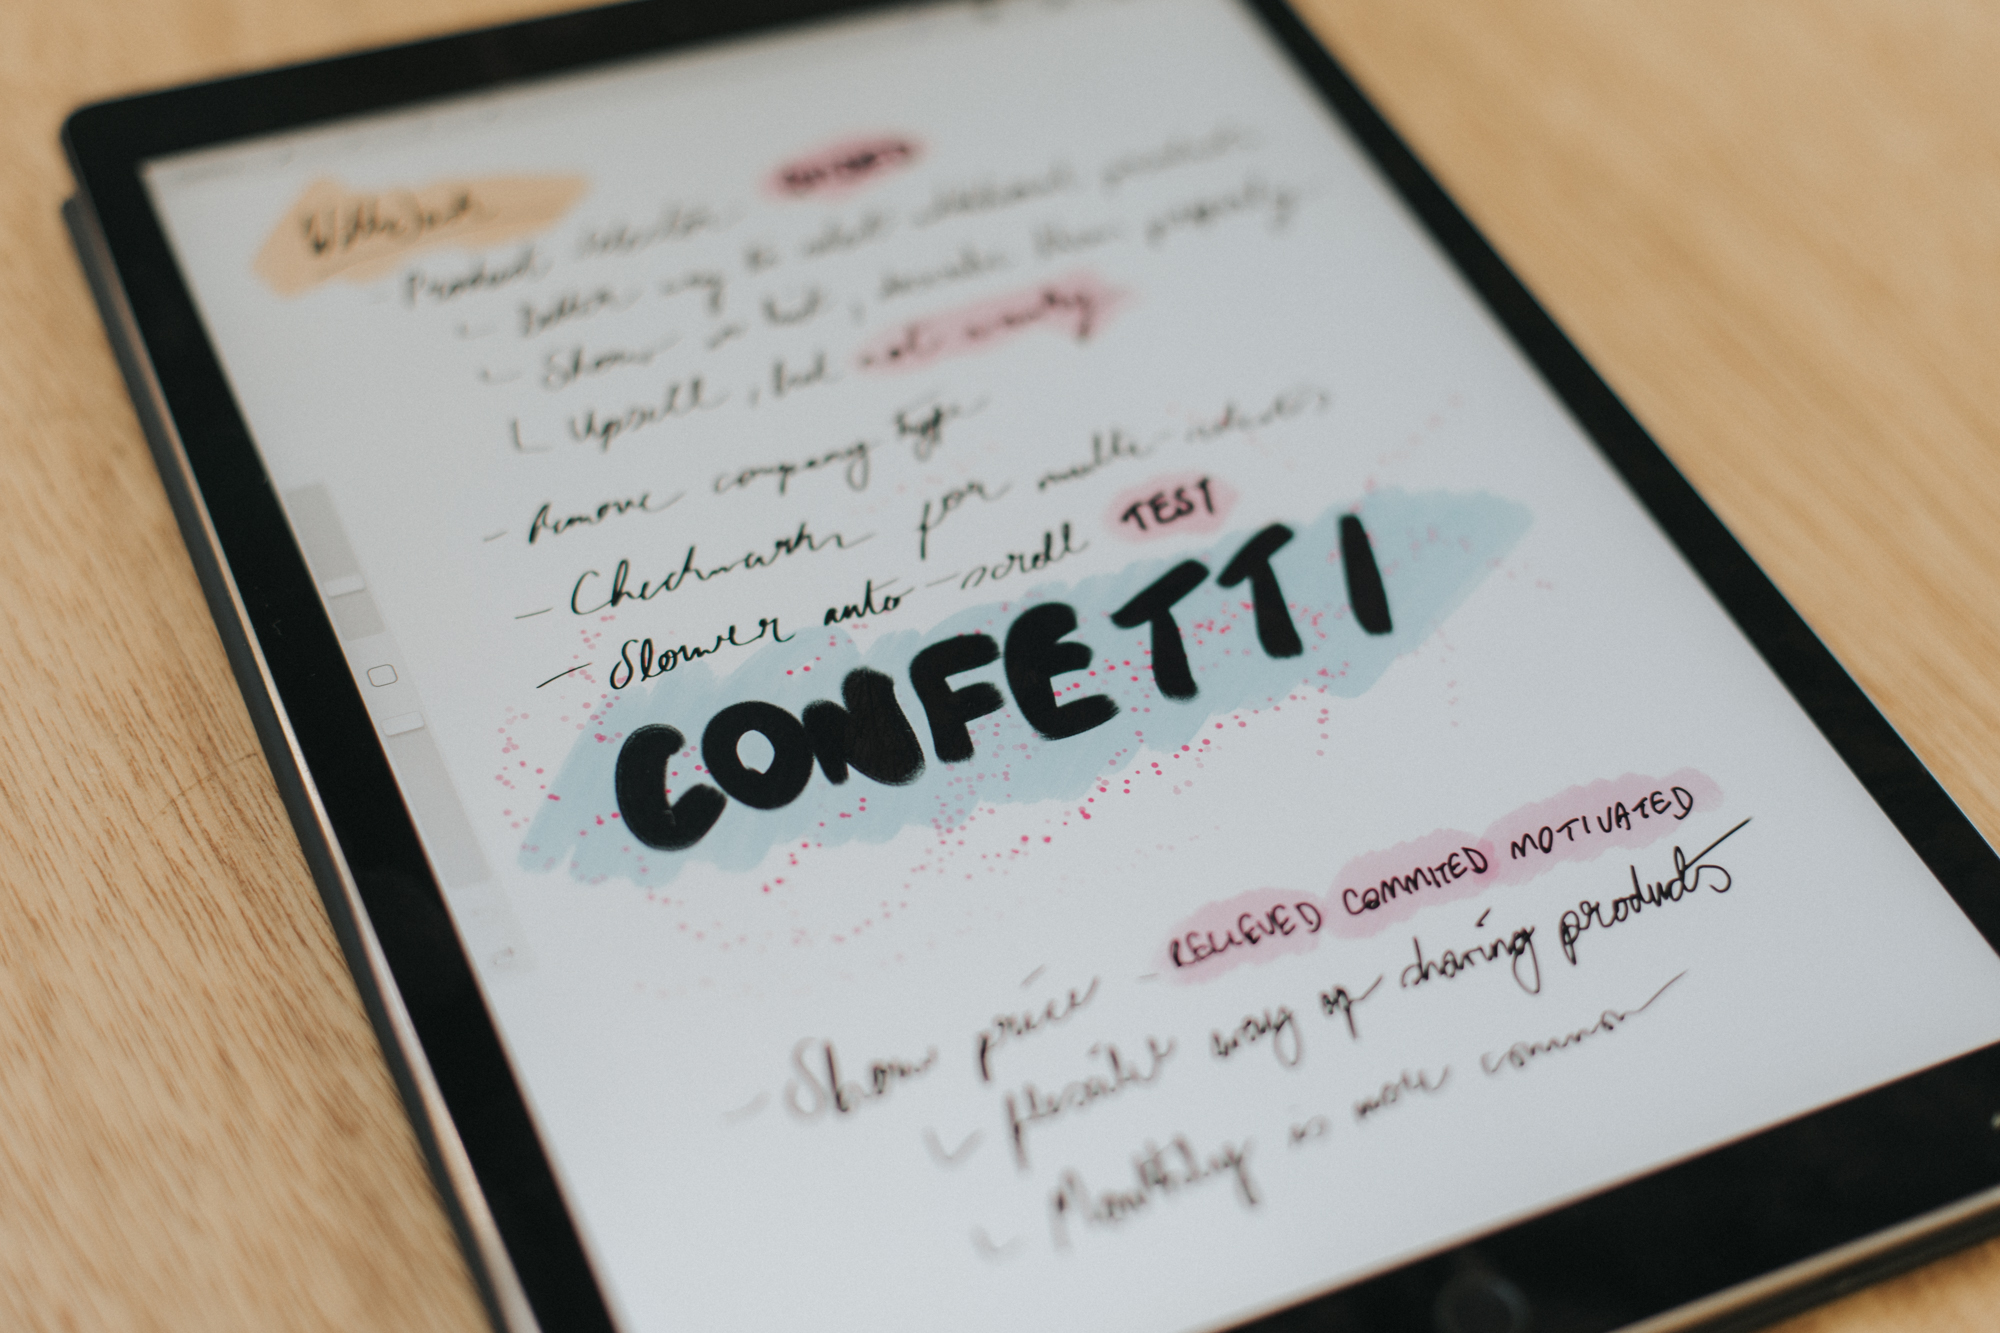 - Product
- Better way to select different products
- Show in list, describe them properly
L Upsell, but not annoying
- Remove company type
- Checkmarks for multi-selects
- Slower auto-scroll TEST
CONFETTI
RELIEVED COMMITED MOTIVATED
- Show price -
flexible way of sharing products
Monthly is more common